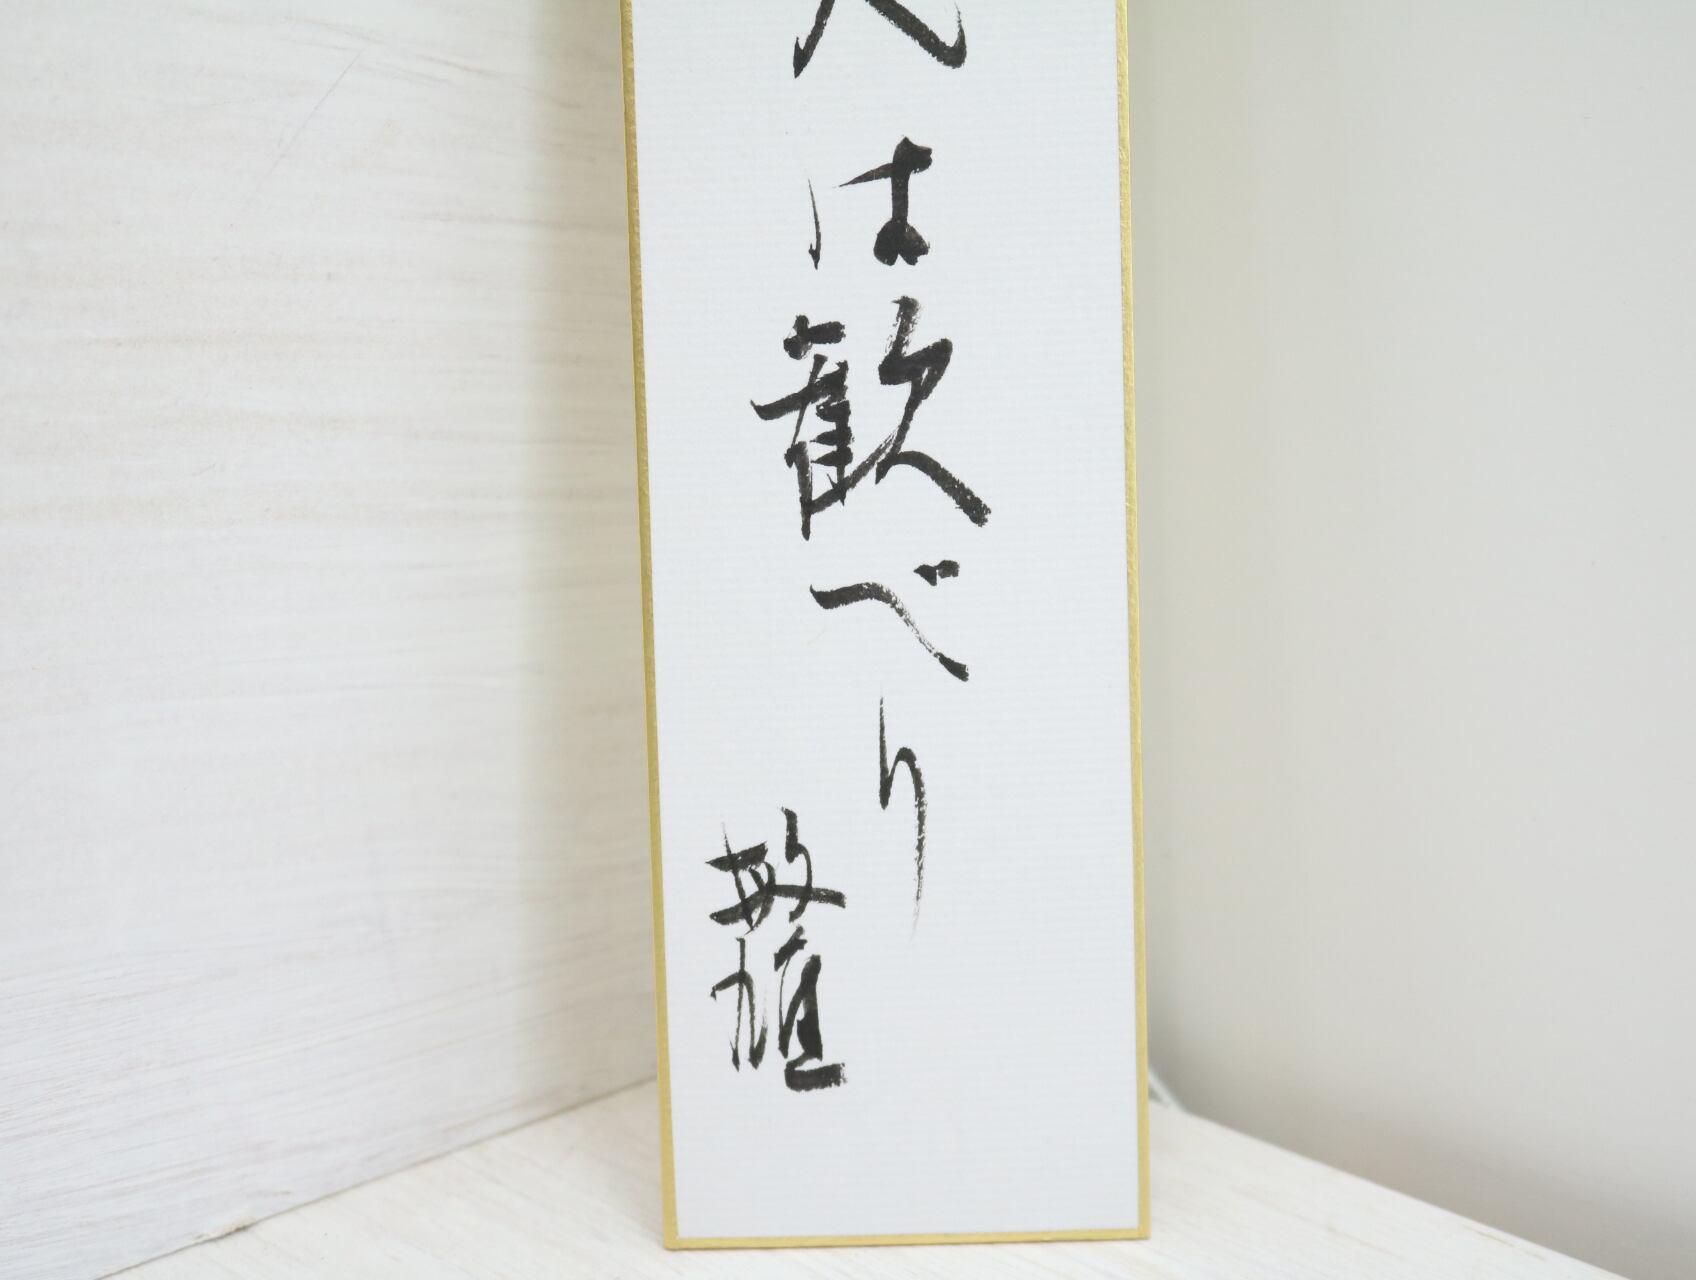 人は歓べり
敏雄